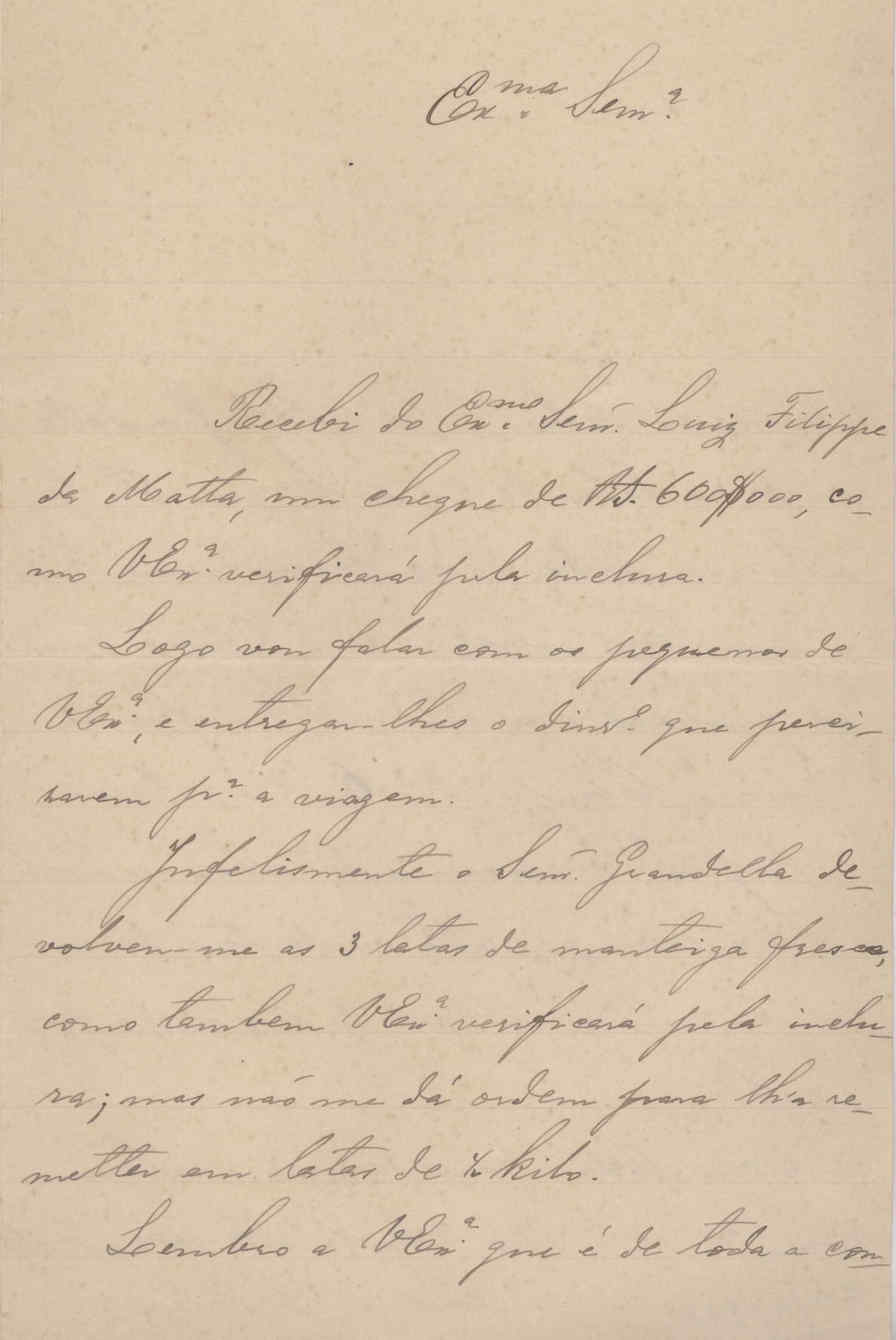 Ex.ma Senr.ª
Recebi do Ex.mo Senr. Luiz Filippe
da Matta, um cheque de Rs. 600$000, co-
mo VEx.ª verificará pela inclusa.
Logo vou falar com os pequenos de
VEx.ª, e entregar-lhes o dinr.º que perci-
savem pr.ª a viagem.
Infelismente o Senr. Grandella de-
volveu-me as 3 latas de manteiga fresca,
como tambem VEx.ª verificará pela inclu-
sa; mas não me dá ordem para lh'a re-
metter em latas de ½ kilo.
Lembro a VEx.ª que é de toda a con-